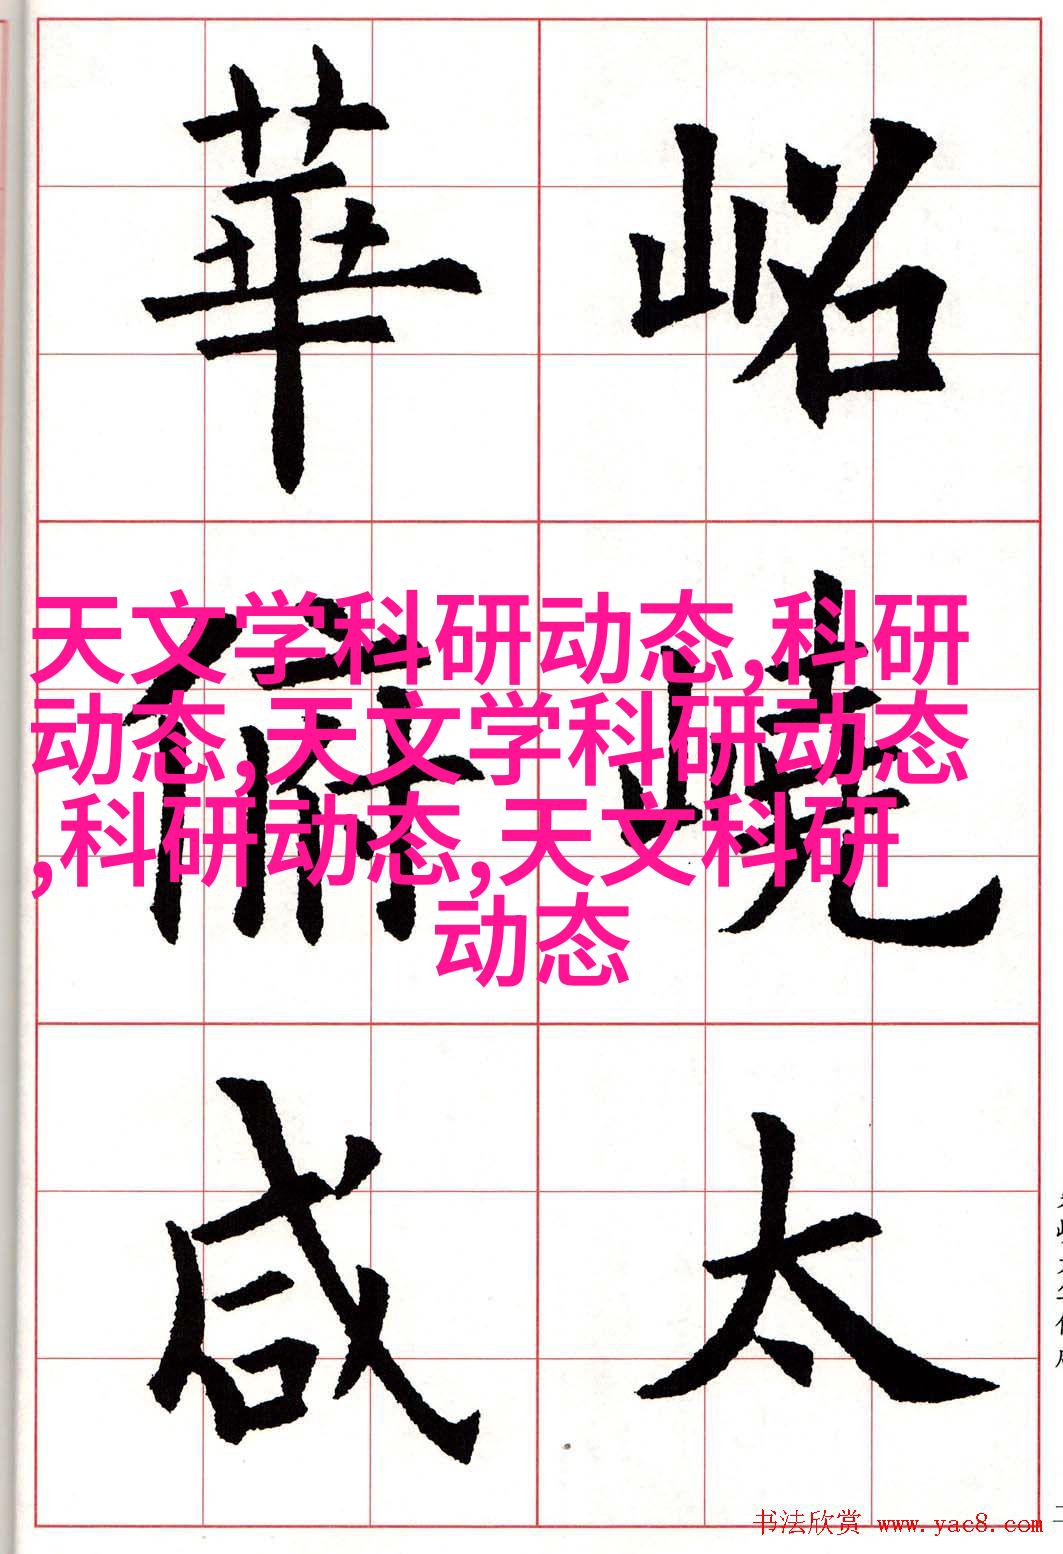 岹嶢太
華俯咸
天文学科研动态,科研
动态,天文学科研动态
,科研动态,天文科研
动态
书法欣赏 www.yac8.com